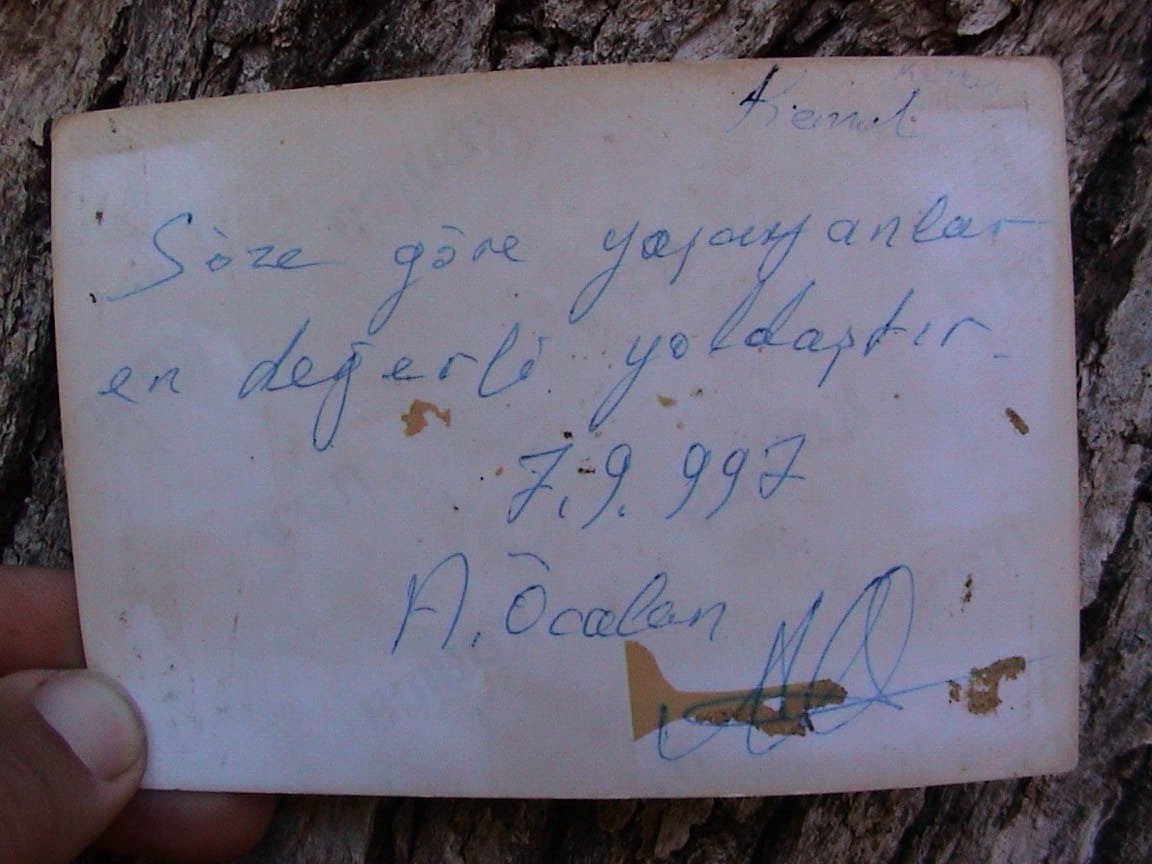 Kemal
Söze göre yaşayanlar
en değerli yoldaştır.
7.9.997
A. Öcalan